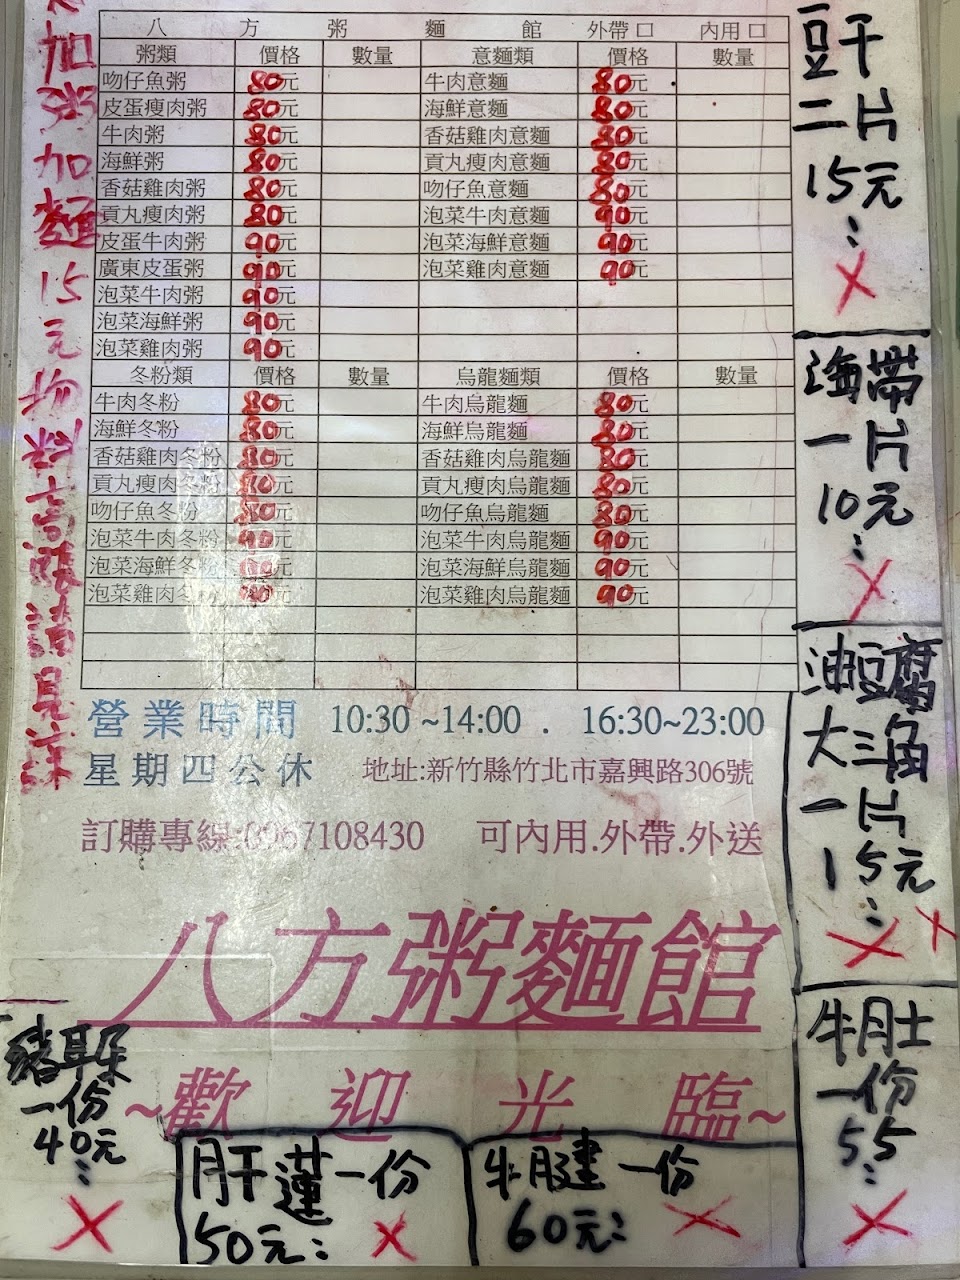 八方粥麵館 外帶□ 內用□
粥類 價格 數量 意麵類 價格 數量
吻仔魚粥 80元 牛肉意麵 80元
皮蛋瘦肉粥 80元 海鮮意麵 80元
牛肉粥 80元 香菇雞肉意麵 80元
海鮮粥 80元 貢丸瘦肉意麵 80元
香菇雞肉粥 80元 吻仔魚意麵 80元
貢丸瘦肉粥 80元 泡菜牛肉意麵 90元
皮蛋牛肉粥 90元 泡菜海鮮意麵 90元
廣東皮蛋粥 90元 泡菜雞肉意麵 90元
泡菜牛肉粥 90元
泡菜海鮮粥 90元
泡菜雞肉粥 90元
冬粉類 價格 數量 烏龍麵類 價格 數量
牛肉冬粉 80元 牛肉烏龍麵 80元
海鮮冬粉 80元 海鮮烏龍麵 80元
香菇雞肉冬粉 80元 香菇雞肉烏龍麵 80元
貢丸瘦肉冬粉 80元 貢丸瘦肉烏龍麵 80元
吻仔魚冬粉 80元 吻仔魚烏龍麵 80元
泡菜牛肉冬粉 90元 泡菜牛肉烏龍麵 90元
泡菜海鮮冬粉 90元 泡菜海鮮烏龍麵 90元
泡菜雞肉冬粉 90元 泡菜雞肉烏龍麵 90元
營業時間 10:30 ~14:00 . 16:30~23:00
星期四公休 地址:新竹縣竹北市嘉興路306號
訂購專線:0967108430 可內用.外帶.外送
八方粥麵館
~歡迎光臨~
加粥加麵15元物料高漲請見諒
豆干
二片
15元:
海帶
一片
10元:
油豆腐
大三角
一片
15元:
牛肚
一份
55:
豬耳朵
一份
40元:
肝蓮一份
50元:
牛腱一份
60元: